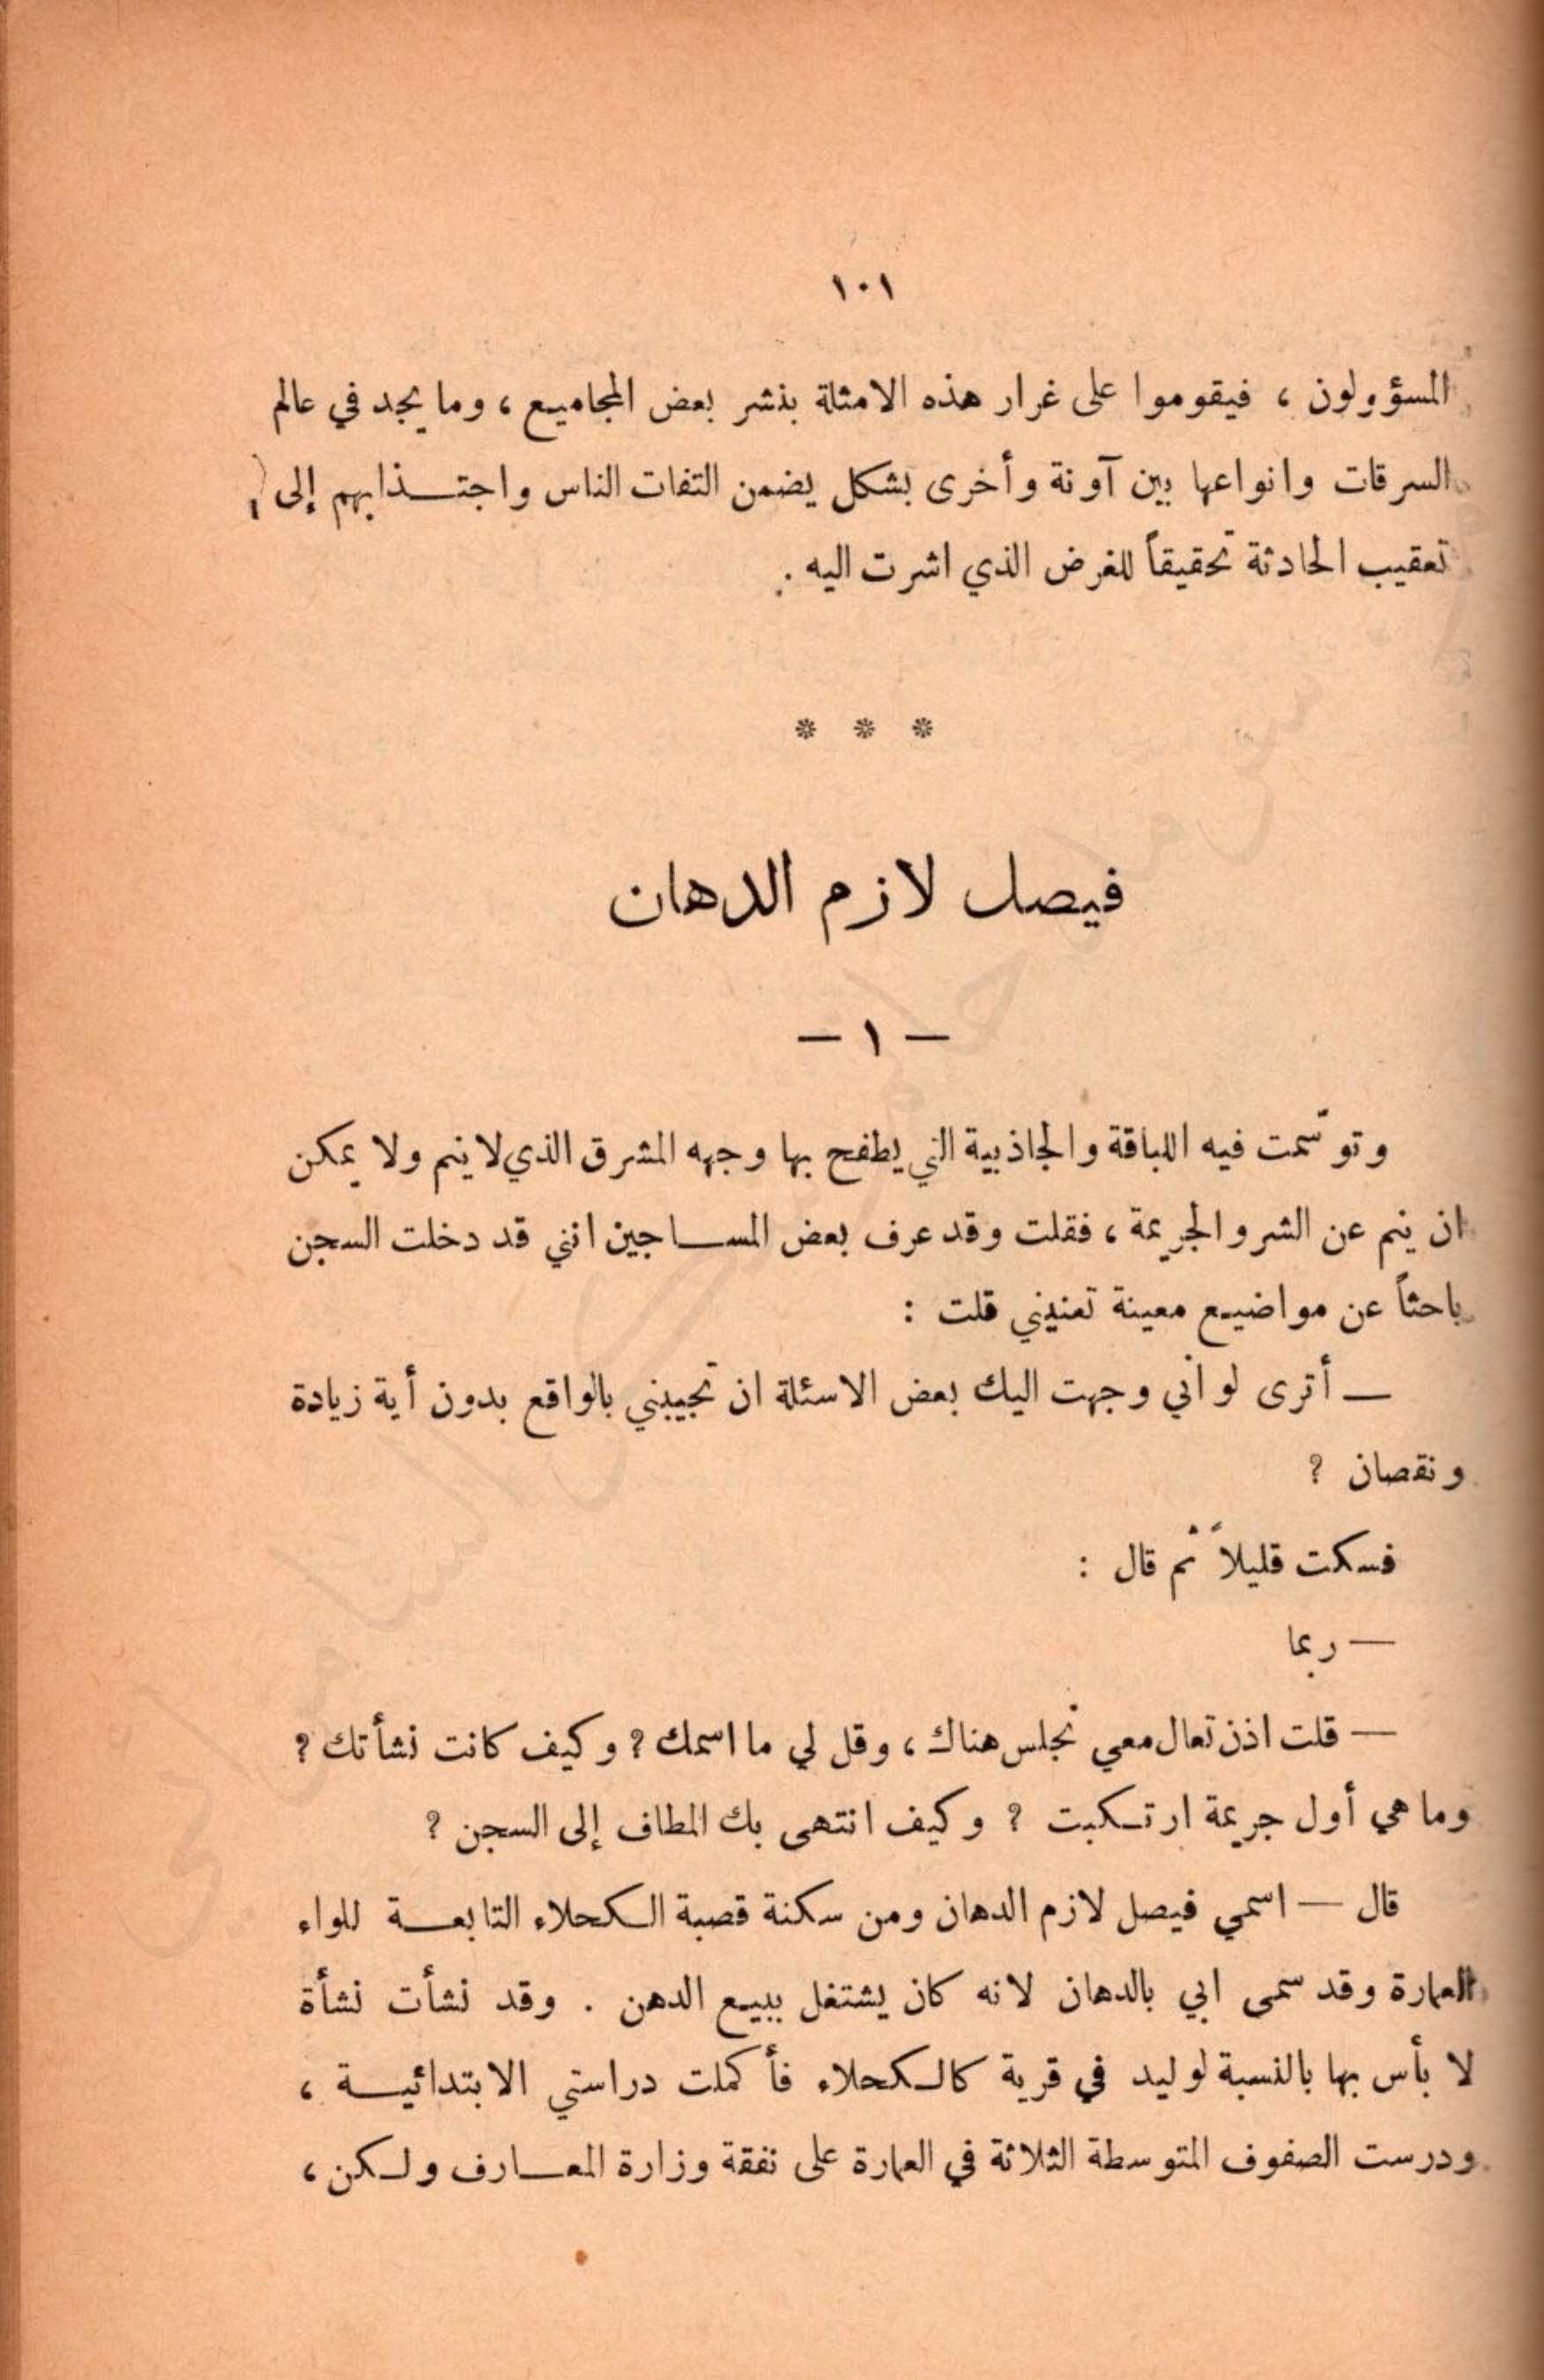 ١٠١
المسؤولون ، فيقوموا على غرار هذه الامثلة بنشر بعض المجاميع ، وما يجد في عالم
السرقات وانواعها بين آونة وأخرى بشكل يضمن التفات الناس واجتــذابهم إلى
تعقيب الحادثة تحقيقاً للغرض الذي اشرت اليه .
* * *
فيصل لازم الدهان
— ١ —
وتوسّمت فيه اللباقة والجاذبية التي يطفح بها وجهه المشرق الذي لا ينم ولا يمكن
ان ينم عن الشر والجريمة ، فقلت وقد عرف بعض المســاجين انني قد دخلت السجن
باحثاً عن مواضيع معينة تعنيني قلت :
— أترى لو أني وجهت اليك بعض الاسئلة ان تجيبني بالواقع بدون أية زيادة
ونقصان ?
فسكت قليلاً ثم قال :
— ربما
— قلت اذن تعال معي نجلس هناك ، وقل لي ما اسمك ? وكيف كانت نشأتك ?
وما هي أول جريمة ارتـكبت ? وكيف انتهى بك المطاف إلى السجن ?
قال — اسمي فيصل لازم الدهان ومن سكنة قصبة الـكحلاء التابعــة للواء
العمارة وقد سمى ابي بالدهان لانه كان يشتغل ببيع الدهن . وقد نشأت نشأة
لا بأس بها بالنسبة لوليد في قرية كالـكحلاء فأكملت دراستي الابتدائيــة ،
ودرست الصفوف المتوسطة الثلاثة في العمارة على نفقة وزارة المعــارف ولـكن ،